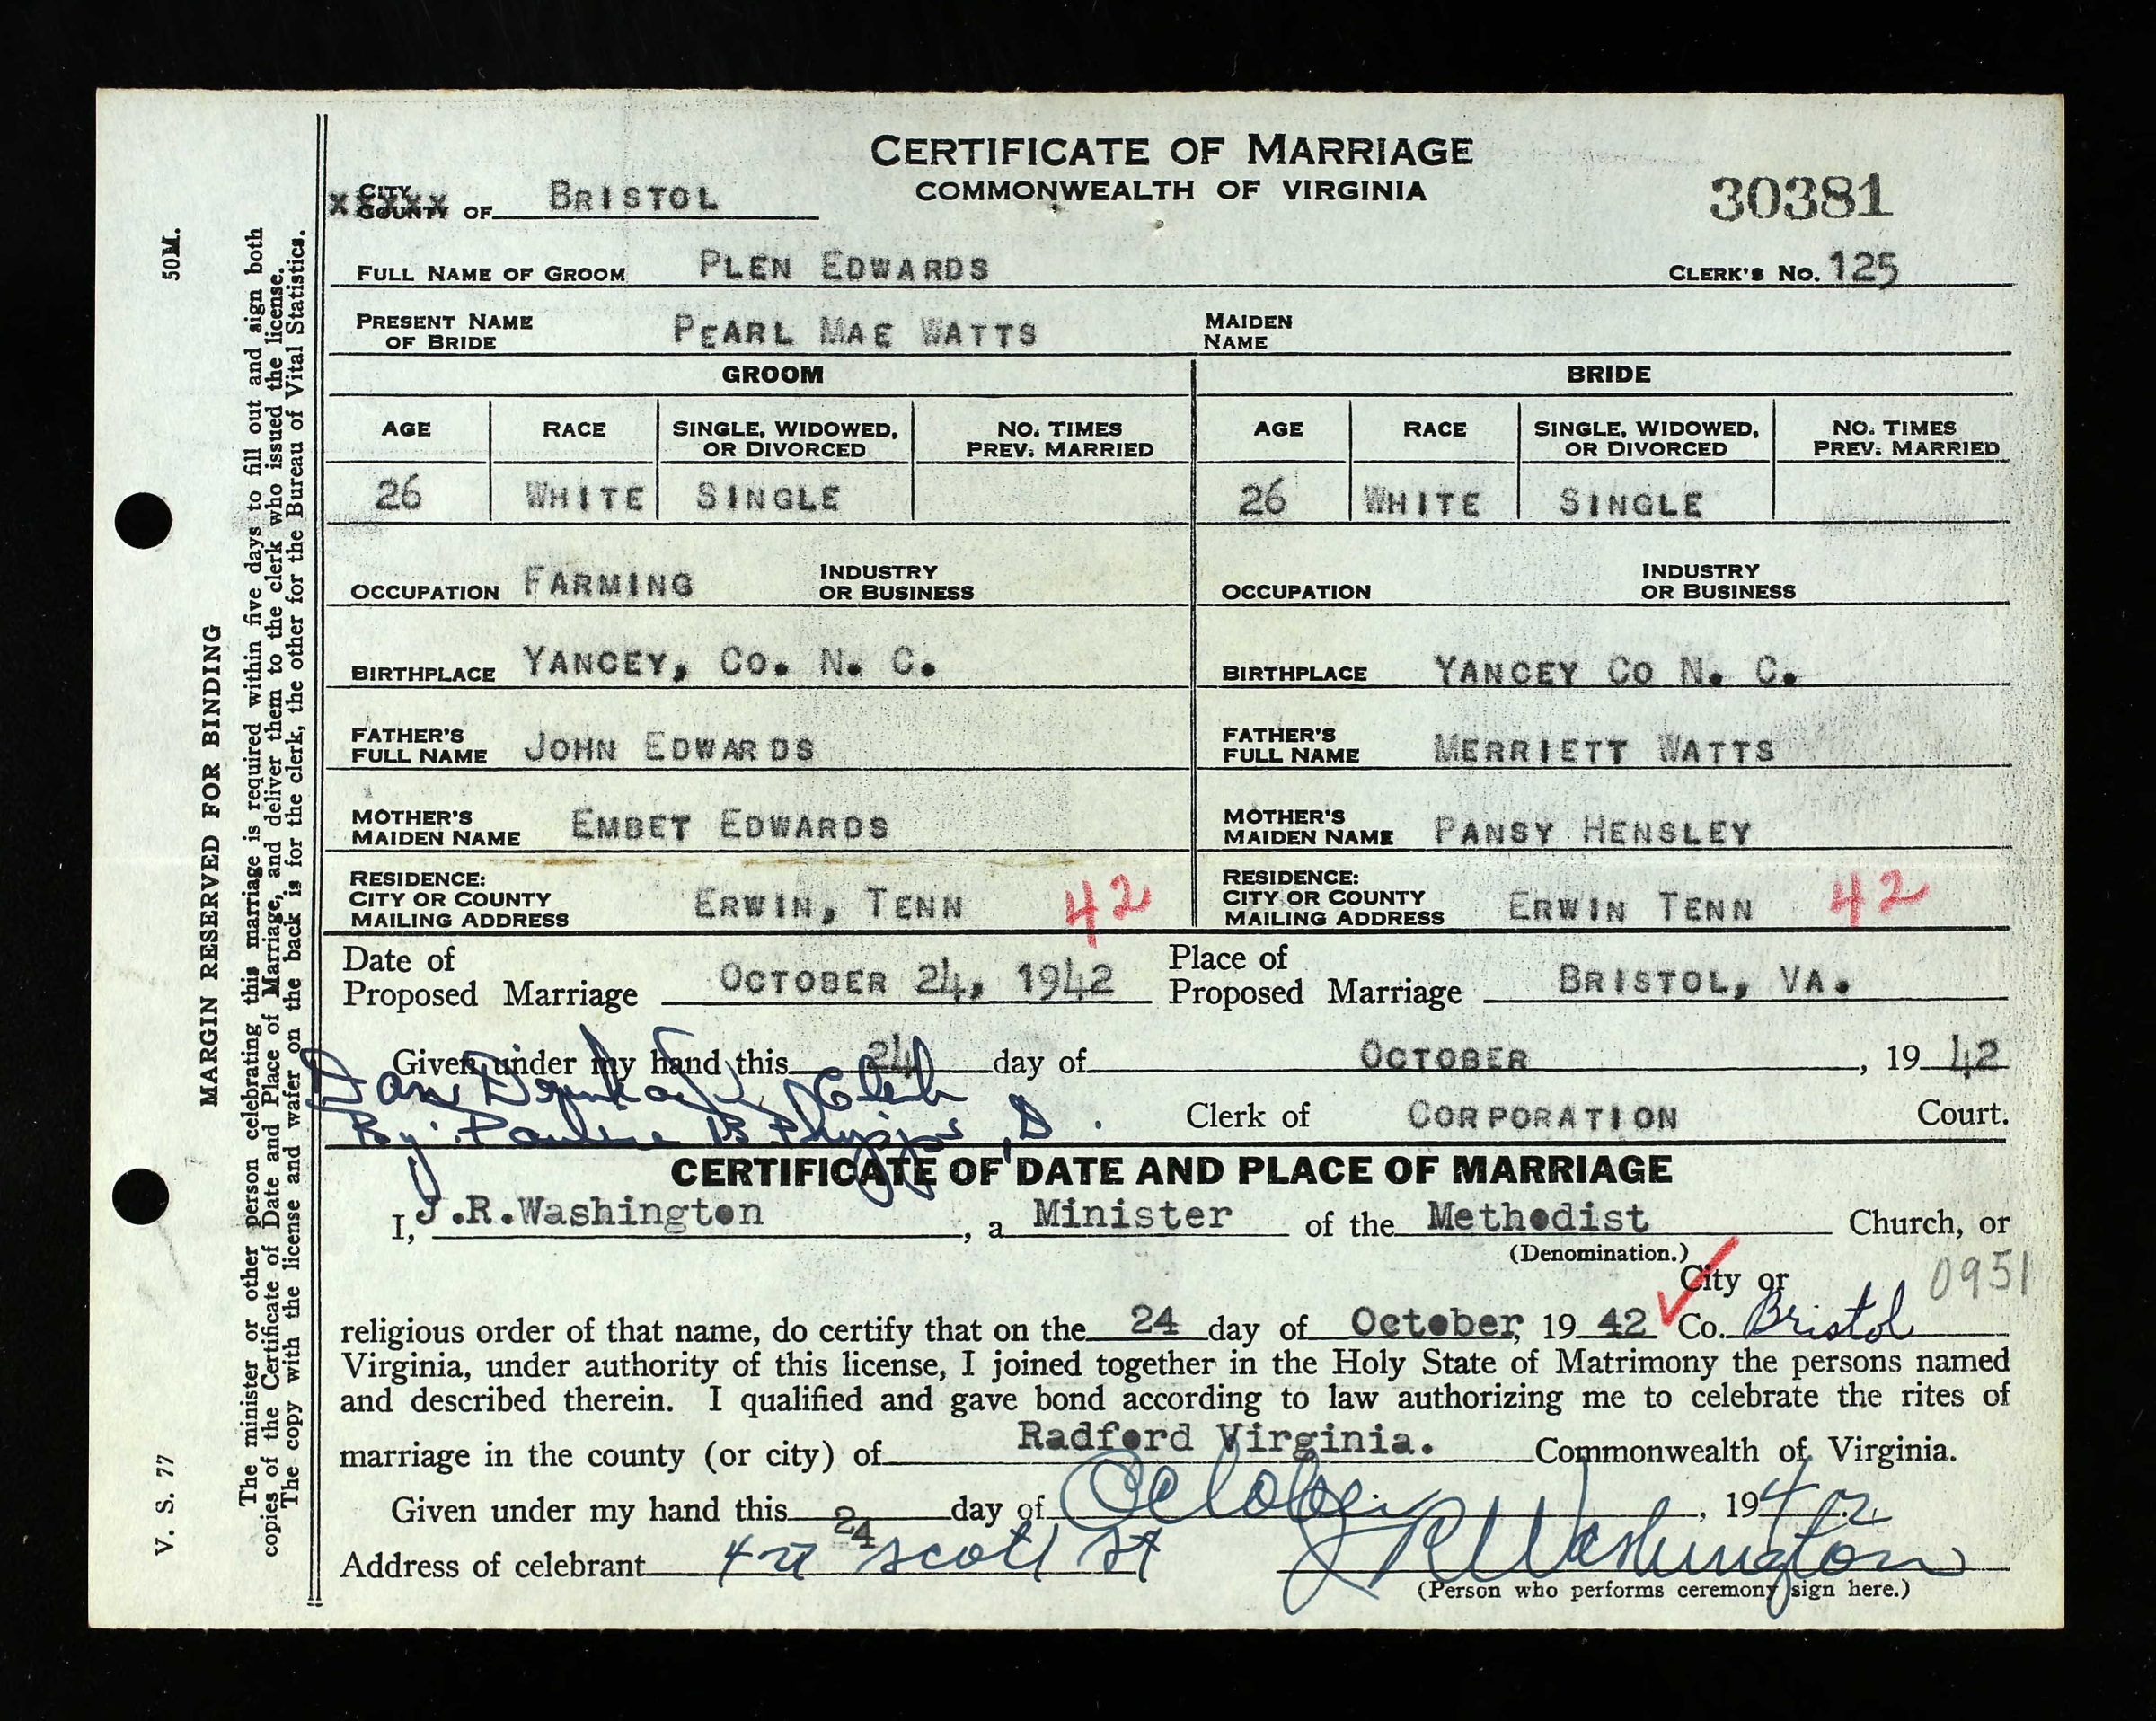 CERTIFICATE OF MARRIAGE
COMMONWEALTH OF VIRGINIA
30381
CITY
COUNTY OF BRISTOL
FULL NAME OF GROOM PLEN EDWARDS CLERK'S NO. 125
PRESENT NAME OF BRIDE PEARL MAE WATTS MAIDEN NAME
GROOM BRIDE
AGE RACE SINGLE, WIDOWED, OR DIVORCED NO. TIMES PREV. MARRIED AGE RACE SINGLE, WIDOWED, OR DIVORCED NO. TIMES PREV. MARRIED
26 WHITE SINGLE 26 WHITE SINGLE
OCCUPATION FARMING INDUSTRY OR BUSINESS OCCUPATION INDUSTRY OR BUSINESS
BIRTHPLACE YANCEY, CO. N. C. BIRTHPLACE YANCEY CO N. C.
FATHER'S FULL NAME JOHN EDWARDS FATHER'S FULL NAME MERRIETT WATTS
MOTHER'S MAIDEN NAME EMBET EDWARDS MOTHER'S MAIDEN NAME PANSY HENSLEY
RESIDENCE: CITY OR COUNTY MAILING ADDRESS ERWIN, TENN 42 RESIDENCE: CITY OR COUNTY MAILING ADDRESS ERWIN TENN 42
Date of Proposed Marriage OCTOBER 24, 1942 Place of Proposed Marriage BRISTOL, VA.
Given under my hand this 24 day of OCTOBER, 1942
Clerk
By: Pauline B. Phipps, D. Clerk of CORPORATION Court.
CERTIFICATE OF DATE AND PLACE OF MARRIAGE
I, J.R.Washington, a Minister of the Methodist Church, or
(Denomination.)
City or 0951
religious order of that name, do certify that on the 24 day of October, 19 42 Co. Bristol
Virginia, under authority of this license, I joined together in the Holy State of Matrimony the persons named
and described therein. I qualified and gave bond according to law authorizing me to celebrate the rites of
marriage in the county (or city) of Radford Virginia. Commonwealth of Virginia.
Given under my hand this 24 day of October, 1942
Address of celebrant Scott St J R Washington
(Person who performs ceremony sign here.)
MARGIN RESERVED FOR BINDING
V. S. 77 50M.
The minister or other person celebrating this marriage is required within five days to fill out and sign both
copies of the Certificate of Date and Place of Marriage, and deliver them to the clerk who issued the license.
The copy with the license and wafer on the back is for the clerk, the other for the Bureau of Vital Statistics.